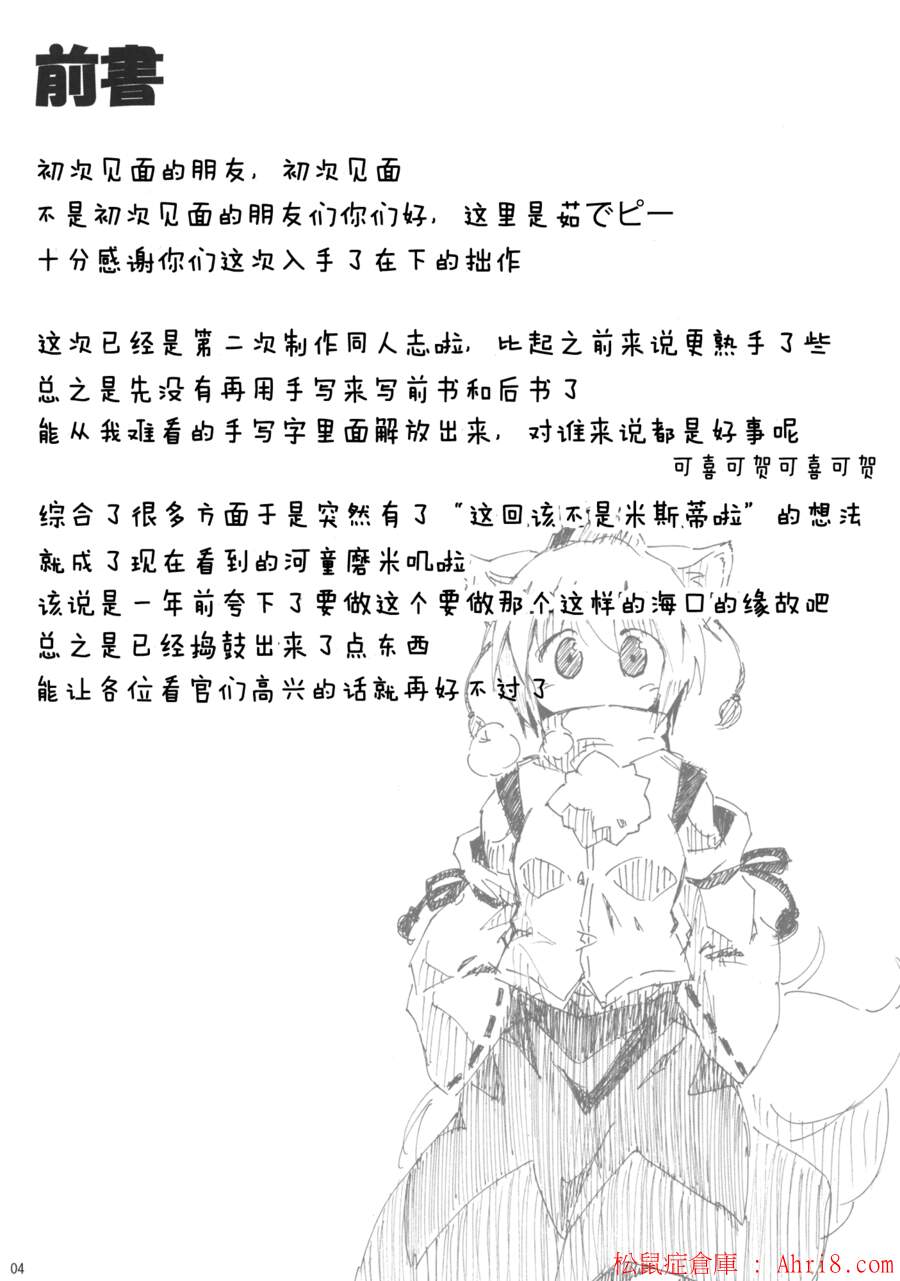 前書
初次见面的朋友，初次见面
不是初次见面的朋友们你们好，这里是茹でピー
十分感谢你们这次入手了在下的拙作
这次已经是第二次制作同人志啦，比起之前来说更熟手了些
总之是先没有再用手写来写前书和后书了
能从我难看的手写字里面解放出来，对谁来说都是好事呢
可喜可贺可喜可贺
综合了很多方面于是突然有了“这回该不是米斯蒂啦”的想法
就成了现在看到的河童磨米叽啦
该说是一年前夸下了要做这个要做那个这样的海口的缘故吧
总之是已经捣鼓出来了点东西
能让各位看官们高兴的话就再好不过了
04
松鼠症倉庫 : Ahri8.com